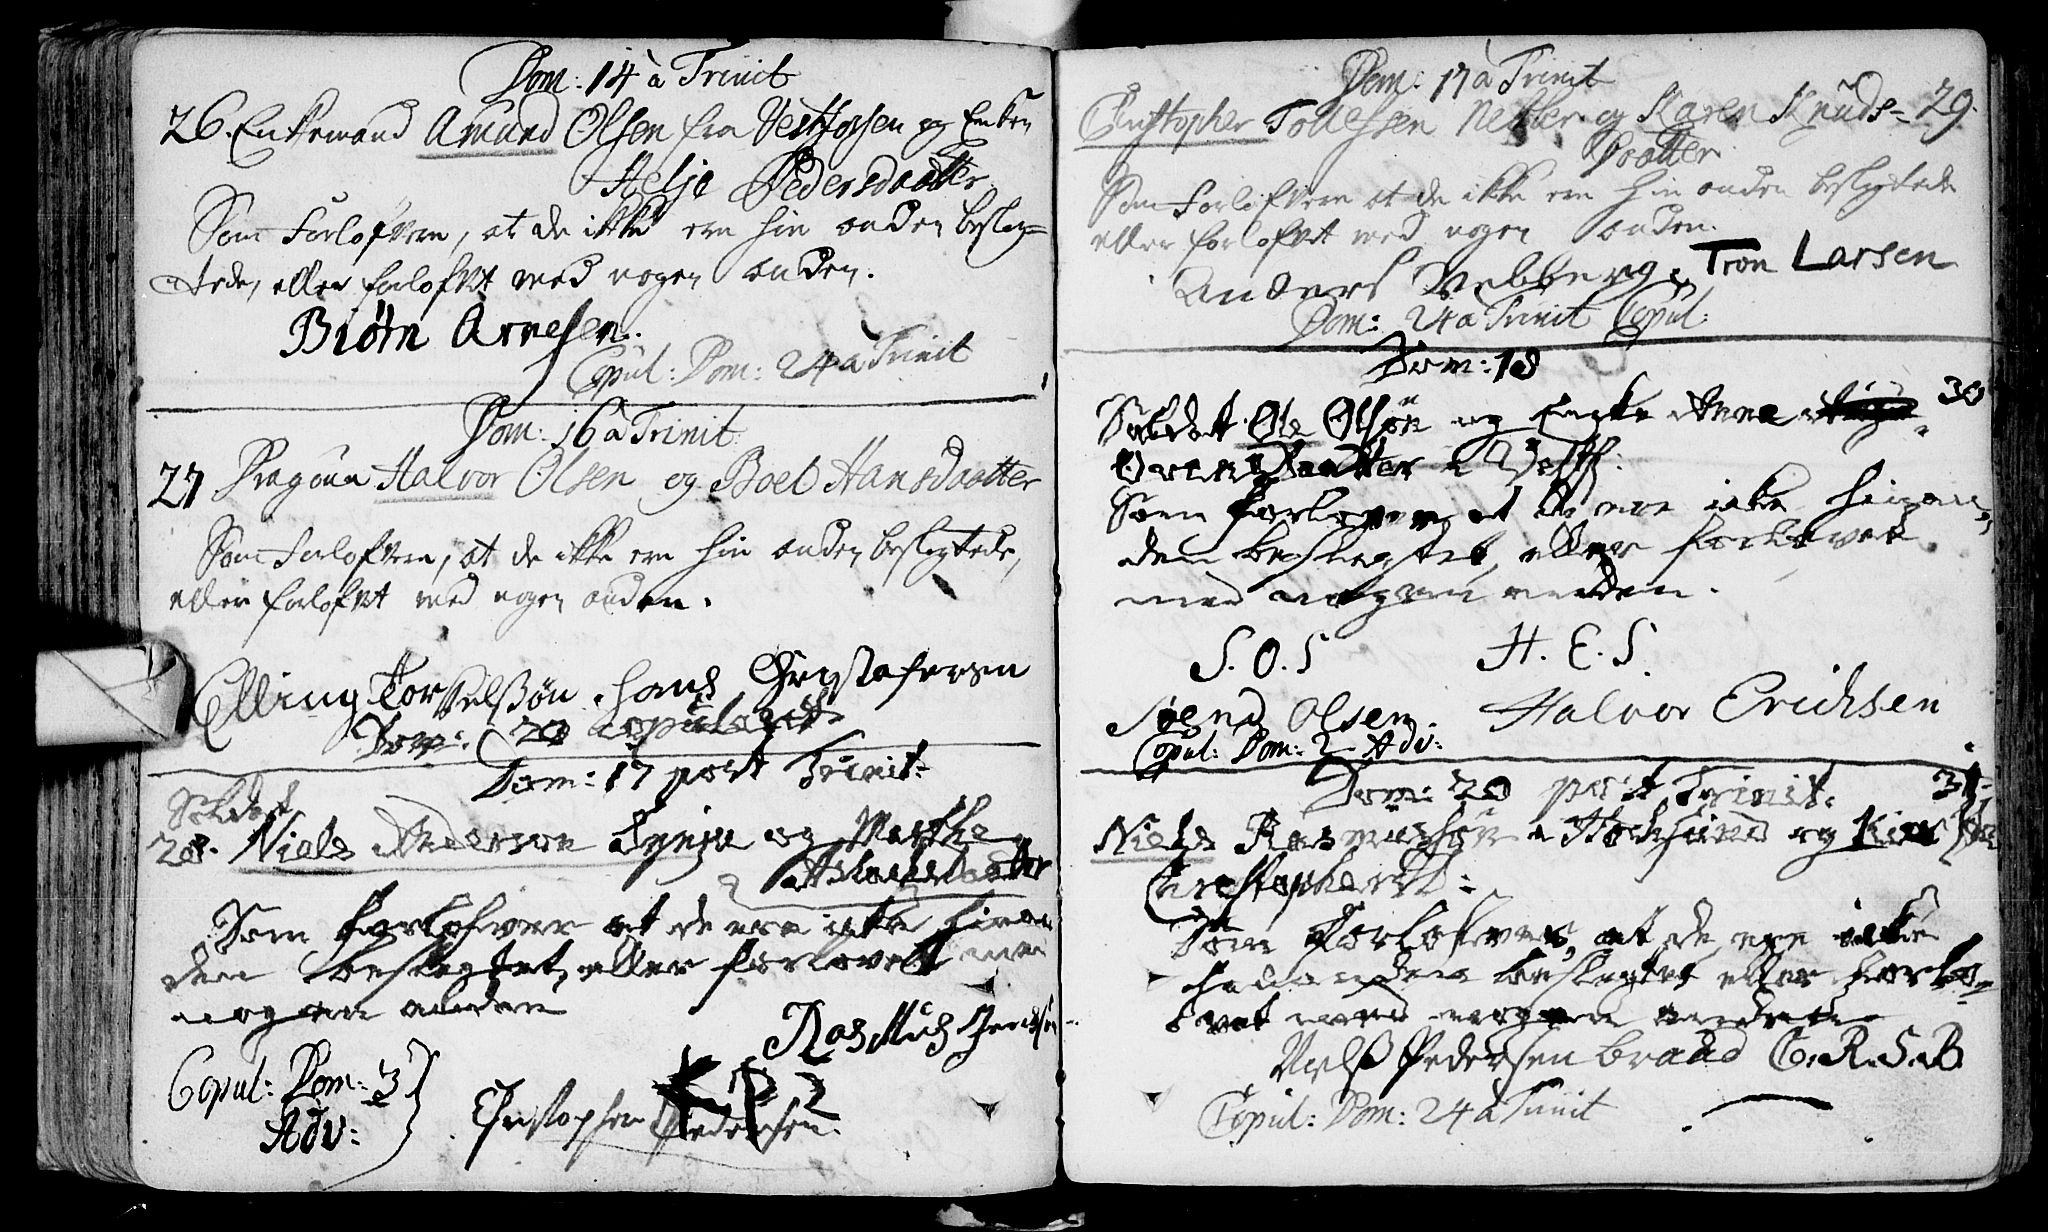 Dom: 14 a Trinit
26. Enkemand Amund Olsen fra Vestfossen og Enken
Helje Pedersdaatter
Som Forlofvere, at de ikke ere hin anden besleg-
tede, eller forlofvet med nogen anden.
Biørn Arnesen.
Copul: Dom: 24 a Trinit
Dom: 16 a Trinit:
27 Dragoun Halvor Olsen og Boel Hansdaatter
Som Forlofvere, at de ikke ere hin anden beslegtede,
eller forlofvet med nogen anden.
Elling Torkelßøn. Hans Christafersen
Dom: 20 copuleret
Dom: 17 post Trinit:
Soldat
28. Niels Pedersøn og Marthe
Aslachsdaatter
Som forlofver at de ere icke hinan
den beslegtet, eller forlovet med
nogen anden
Ras Mus
Copul: Dom: 3
Adv:
Christopher Pedersen.
Dom: 17 a Trinit
Christopher Tollessen og Karen Knuds- 29.
Daatter
Som Forlofvere at de ikke ere hin anden beslegtede
eller forlofvet med nogen anden.
Anders Vebberg. Tron Larsen
Dom: 24 a Trinit Copul:
Dom: 18
Soldat Ole Olsøn og Enke Anne 30
Som forlover at de ere icke hinan-
den beslegtet, eller forlovet
med nogen anden.
S. O. S H. E. S.
Svend Olsen. Halvor Erichsen
Copul: Dom: 2 Adv:
Dom: 20 post Trinit: 31.
Niels Rasmusßøn og
Christophersd:
Som Forlofver, at de ere icke
hinanden beslegtet eller forlo-
vet med nogen anden
Nielß Pedersen braad C. R. S. B
Copul: Dom: 24 a Trinit